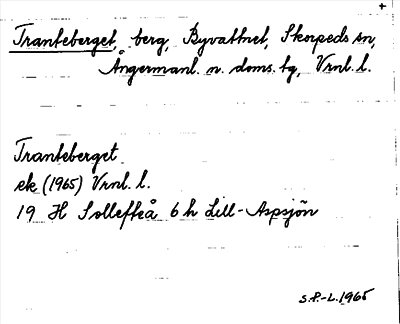 +
Tranteberget, berg, Byvattnet, Skorpeds sn,
Ångermanl. n. doms. tg, Vrnl. l.
Tranteberget
ek (1965) Vrnl. l.
19 H Sollefteå 6 h Lill-Aspsjön
S.P.-L. 1965